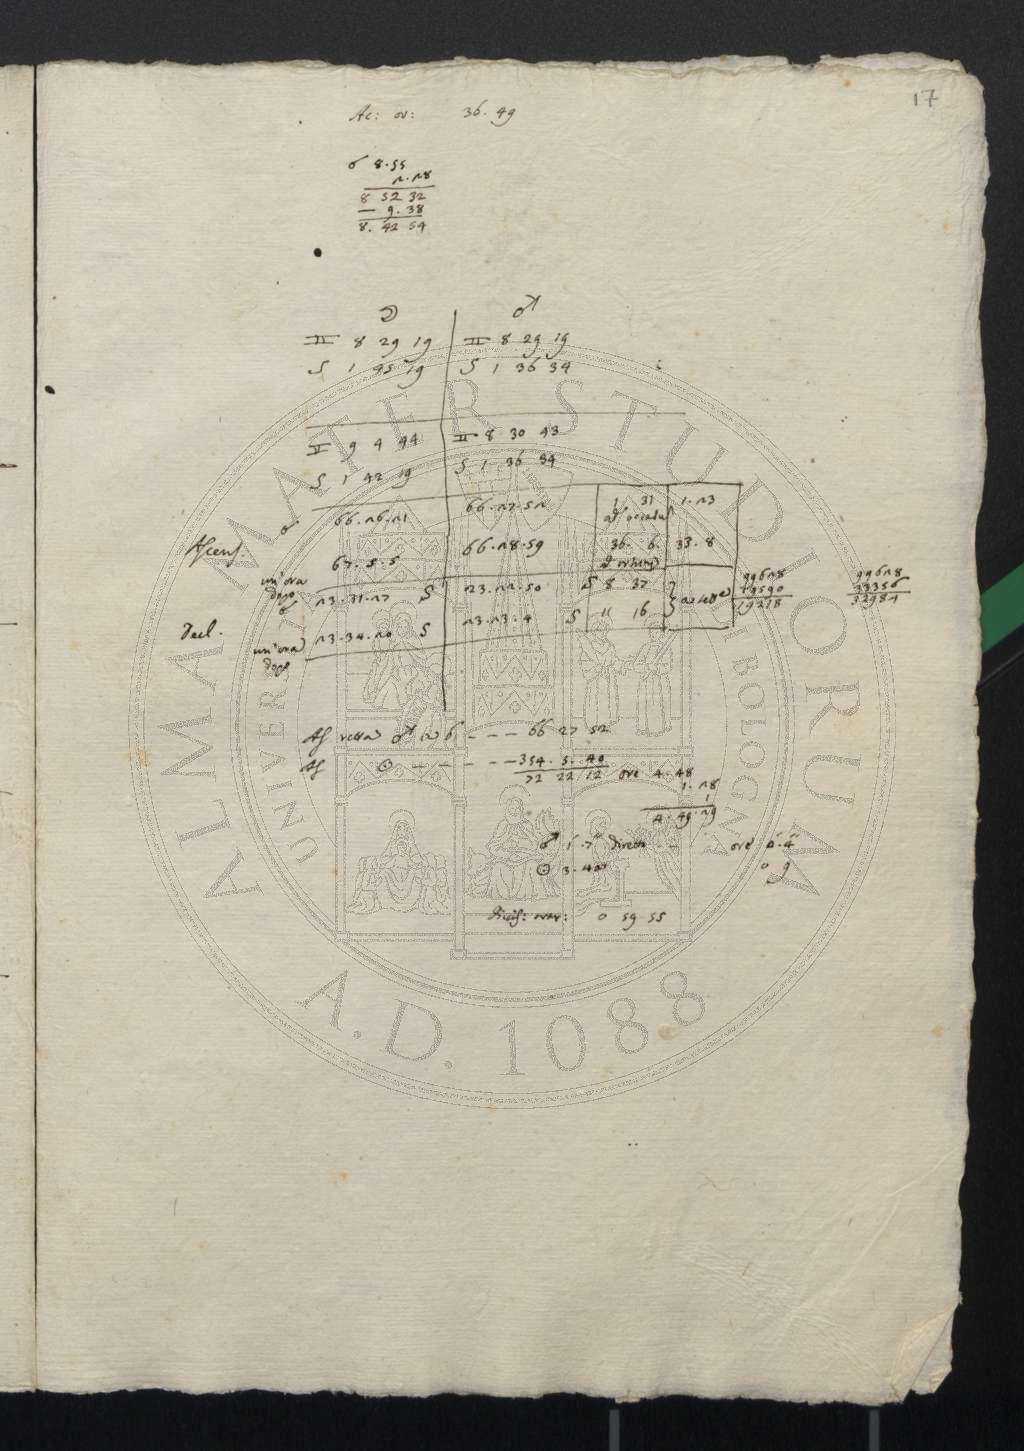 17
Ac: or: 36. 49
☌ 8.55
2.28
8 52 32
— 9.38
8. 42 54
☽ ♂
♊ 8 29 19 ♊ 8 29 19
S 1 45 19 S 1 36 34
♊ 9 4 44 ♊ 8 30 43
S 1 42 19 S 1 36 34
☌ 66.26.21 66.27.52 1 31 1.23
ad occasum
Ascens. 67.5.5 66.28.59 36. 6. 33.8
ad ortum
un'ora dopo ☌ 23.31.27 S 23.22.50 S 8 37
Decl.
un'ora dopo 23.34.20 S 23.23.4 S 11 16
99628 99628
19590 33356
19218 32984
As retta ♂ in ☌ - - - 66 27 52
As ☉ - - - - - 354. 5. 40
72 22 12 ore 4.48
1.28
1
4.49.29
♂ 1'.7" directo - ore 0'.4"
☉ 3.40 0 9
orar: 0 59 55
ALMA MATER STUDIORUM
UNIVERSITÀ DI BOLOGNA
A.D. 1088